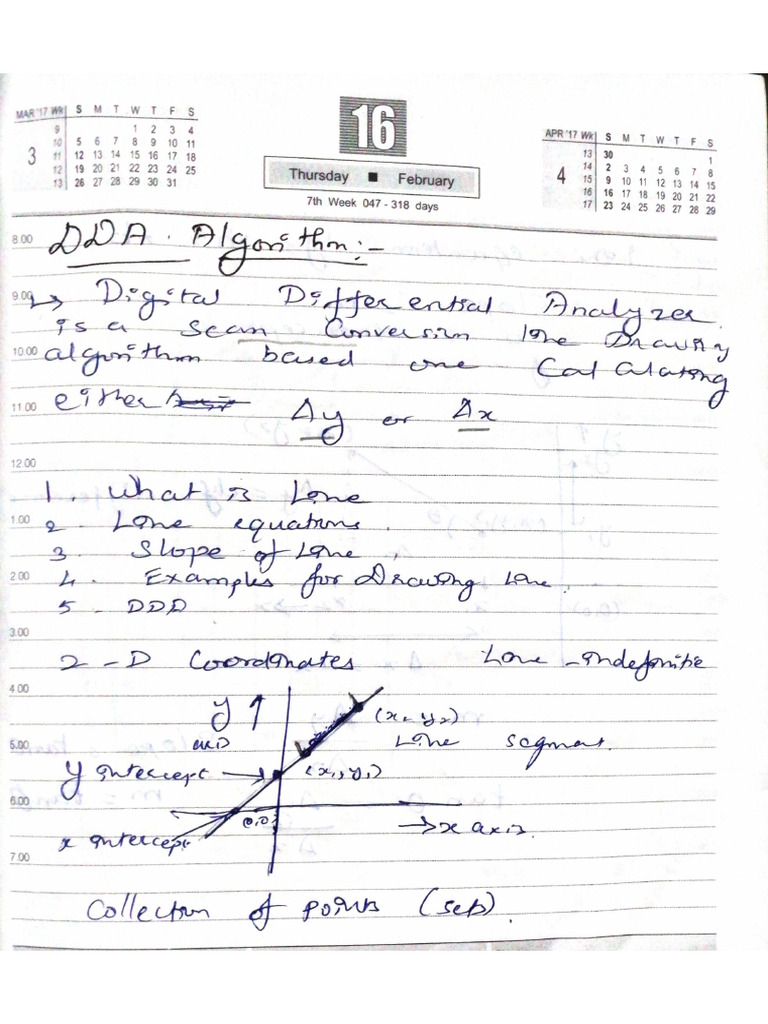 MAR '17 Wk S M T W T F S
9 1 2 3 4
10 5 6 7 8 9 10 11
3 11 12 13 14 15 16 17 18
12 19 20 21 22 23 24 25
13 26 27 28 29 30 31
16
Thursday ■ February
7th Week 047 - 318 days
APR '17 Wk S M T W T F S
13 30 1
14 2 3 4 5 6 7 8
4 15 9 10 11 12 13 14 15
16 16 17 18 19 20 21 22
17 23 24 25 26 27 28 29
8.00 DDA. Algorithm:-
9.00 Digital Differential Analyzer
is a Scan Conversion line Drawing
10.00 algorithm based one Calculating
11.00 either Δy or Δx
12.00
1. What is Line
1.00 2. Line equations.
3. Slope of Line.
2.00 4. Examples for Drawing Line.
5. DDD
3.00
2-D Coordinates Line - indefinitie
4.00
y ↑ (x2 y2)
axis
5.00 Line segment.
y intercept → (x1, y1)
6.00
(0,0)
→ x axis.
x intercept
7.00
Collection of points (sets).